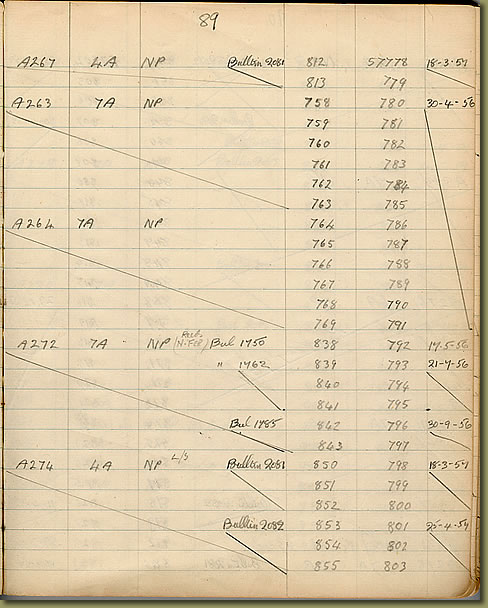 89
A267 4A NP Bulletin 2081 812 57778 18-3-57
813 779
A263 7A NP 758 780 30-4-56
759 781
760 782
761 783
762 784
763 785
A264 7A NP 764 786
765 787
766 788
767 789
768 790
769 791
A272 7A NP Bul 1750 838 792 17-5-56
" 1762 839 793 21-7-56
840 794
841 795
Bul 1785 842 796 30-9-56
843 797
A274 4A NP L/S Bulletin 2081 850 798 18-3-57
851 799
852 800
Bulletin 2082 853 801 25-4-57
854 802
855 803